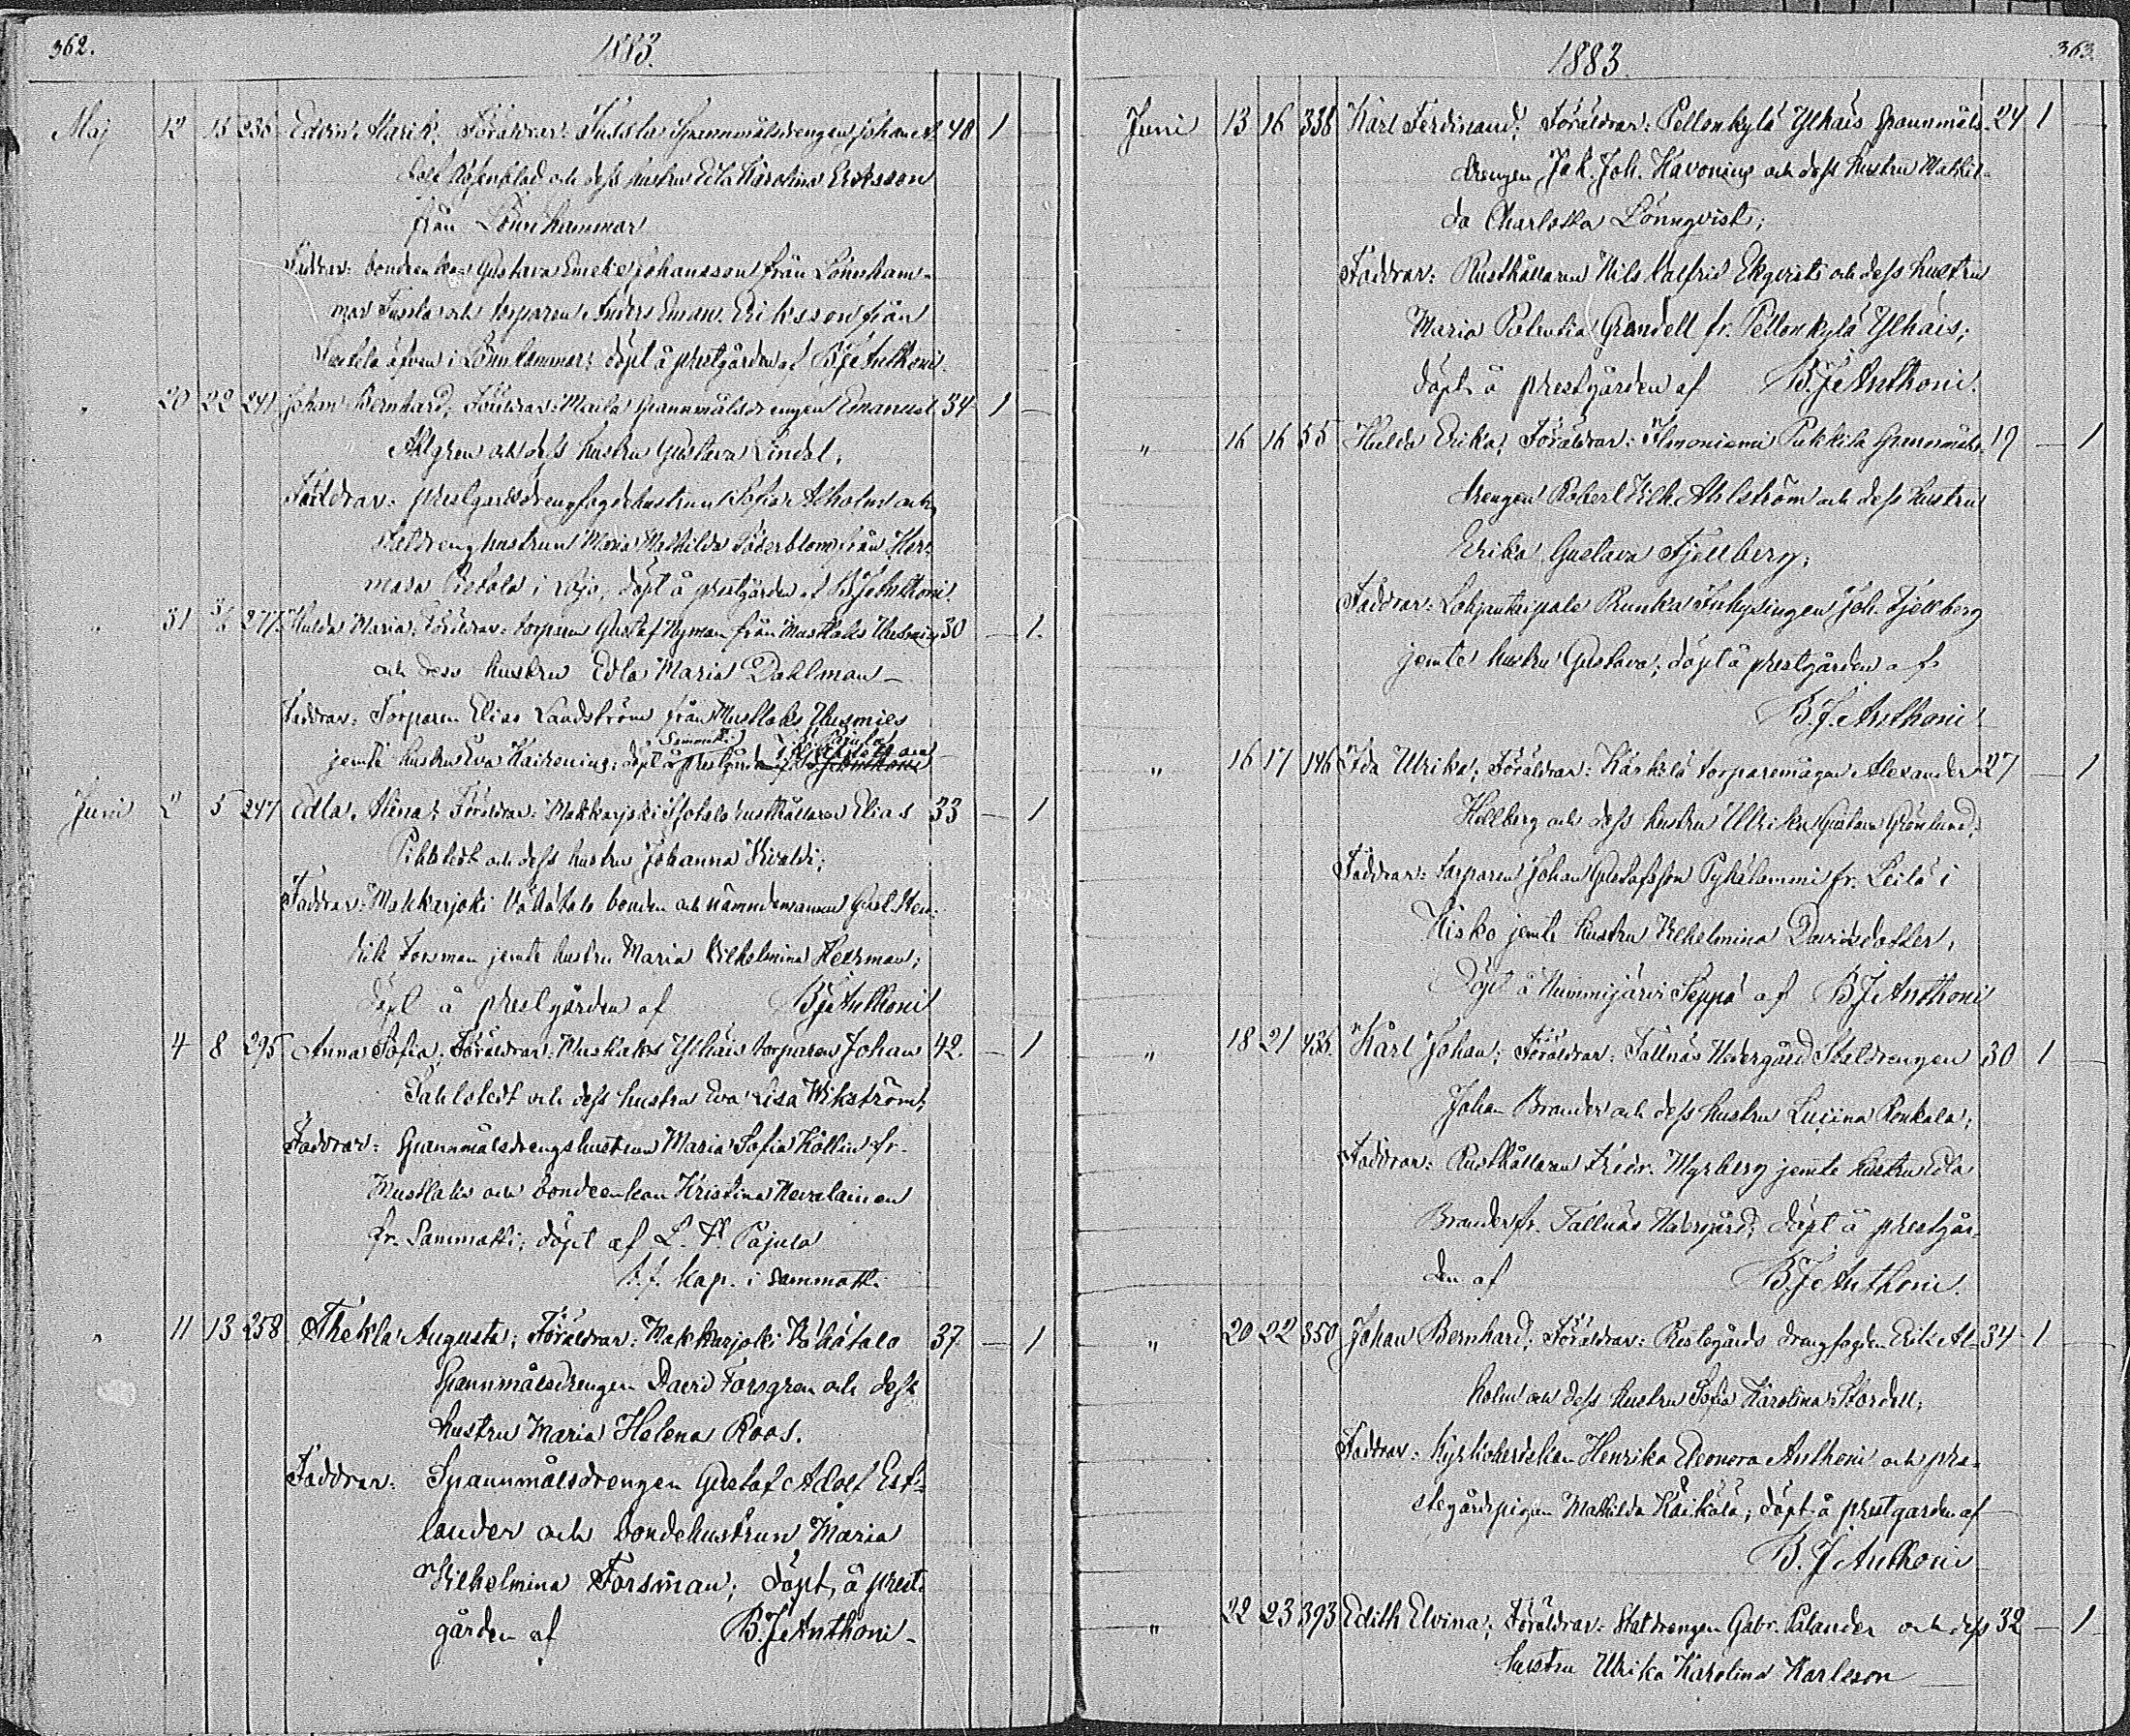 362.
1883.
Maj 12 15 236 Edvin Alarik; Föräldrar: Tussla Spannmålsdrengen Johan A- 40 1 —
dolf Rosenblad och dess hustru Edla Karolina Eriksson
från Lönnhammar
Faddrar: bondeenkan Gustava Johansson från Lönnham-
mar Tussla och torparen Anders Eman. Eriksson från
i Lönnhammar; döpt å prestgården af B. J. Anthoni.
" 20 22 241 Johan Bernhard; Föräldrar: Maila Spannmålsdrengen Emanuel 34 1 —
Ahlgren och dess hustru Gustava Lindal;
Faddrar: prestgårdsdrengfogdehustrun Sofia Alholm och
statdrenghustrun Maria Mathilda Söderblom från
i döpt å prestgården af B. J. Anthoni.
" 31 3/6 277 Hulda Maria; Föräldrar: torparen Gustaf Nyman från Mustlaks Uusmies 30 — 1.
och dess hustru Edla Maria Dahlman —
Faddrar: Torparen Elias Landström från Mustlaks Uusmies
jemte hustru Eva döpt Sammatti prestgården af Pajula B. J. Anthoni
Juni 2 5 247 Edla Alina; Föräldrar: Makkarjoki Isotalo rusthållaren Elias 33 — 1
och dess hustru Johanna
Faddrar: Makkarjoki Vähätalo bonden och nämndemannen Gust. Hen-
rik Forsman jemte hustru Maria Vilhelmina Heerman;
döpt å prestgården af B. J. Anthoni
4 8 295 Anna Sofia; Föräldrar: Mustlaks Ylhäis torparen Johan 42. — 1
Sahlstedt och dess hustru Eva Lisa Wikström;
Faddrar: Spannmålsdrengshustrun Maria Sofia Kollin fr.
Mustlaks och bondeenkan Kristina
fr. Sammatti; döpt af L. V. Pajula
v. f. kap. i Sammatti.
" 11 13 258 Thekla Augusta; Föräldrar: Makkarjoki Vähätalo 37 — 1
Spannmålsdrengen David Forsgren och dess
hustru Maria Helena Roos.
Faddrar: Spannmålsdrengen Gustaf Adolf Est-
lander och bondehustrun Maria
Vilhelmina Forsman; döpt å prest-
gården af B. J. Anthoni —
363.
1883.
Juni 13 16 338 Karl Ferdinand; Föräldrar: Pellonkylä Ylhäis Spannmåls- 24 1 —
drengen Jak. Joh. Kavonius och dess hustru Mathil-
da Charlotta Lönnqvist;
Faddrar: Rusthållaren Nils Valfrid Ekqvist och dess hustru
Maria Grandell fr. Pellonkylä Ylhäis;
döpt å prestgården af B. J. Anthoni.
" 16 16 55 Hulda Erika; Föräldrar: Ilmoniemi Pukkila Spannmåls- 19 — 1
drengen Robert Vilh. Ahlström och dess hustru
Erika Gustava Fjellberg;
Faddrar: Lohjantaipale Runka Inhysingen Joh. Fjellberg
jemte hustru Gustava; döpt å prestgården af
B. J. Anthoni
" 16 17 146 Ida Ulrika; Föräldrar: Kärkelä torparemågen Alexander 27 — 1
Hellberg och dess hustru Ulrika Gustava Grönlund;
Faddrar: Torparen Johan Gustafsson Pyhälammi fr. Leilä i
Kisko jemte hustru Vilhelmina Davidsdotter;
Döpt å Nummijärvi Seppä af B. J. Anthoni
" 18 21 436. Karl Johan; Föräldrar: Tallnäs Nedergård Statdrengen 30 1 —
Johan Brander och dess hustru Lucina Ronkala;
Faddrar: Rusthållaren Fredr. Myrberg jemte hustru Edla
Brander fr. Tallnäs Nedergård; döpt å prestgår-
den af B. J. Anthoni.
" 20 22 350 Johan Bernhard; Föräldrar: Prestegårds drengfogden Erik Al- 34 1
holm och dess hustru Sofia Karolina Nordell;
Faddrar: Kyrkoherdskan Henrika Eleonora Anthoni och pre-
stegårdspigan Mathilda Käikälä; döpt å prestgården af
B. J. Anthoni
" 22 23 393 Edith Elvina; Föräldrar: Statdrengen Gabr. Palander och dess 32 — 1
hustru Ulrika Karolina Karlsson —